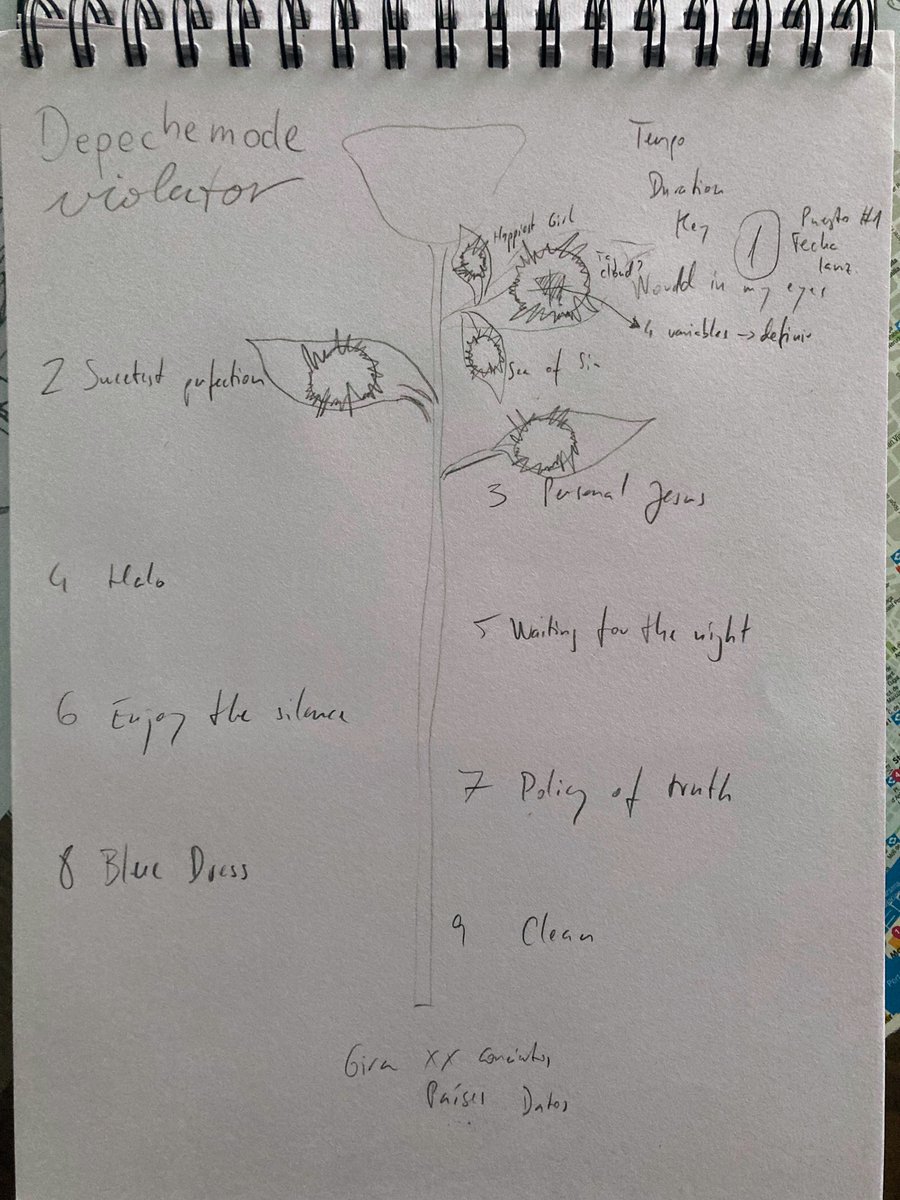 Depeche mode
violator
Tempo
Duration
Key
1
Puesto #1
Fecha
lanz.
Happiest Girl
cloud?
Would in my eyes
4 variables → definir
2 Sweetest perfection
Sea of Sin
3 Personal Jesus
4 Halo
5 Waiting for the night
6 Enjoy the silence
7 Policy of truth
8 Blue Dress
9 Clean
Gira XX conciertos
Países Datos